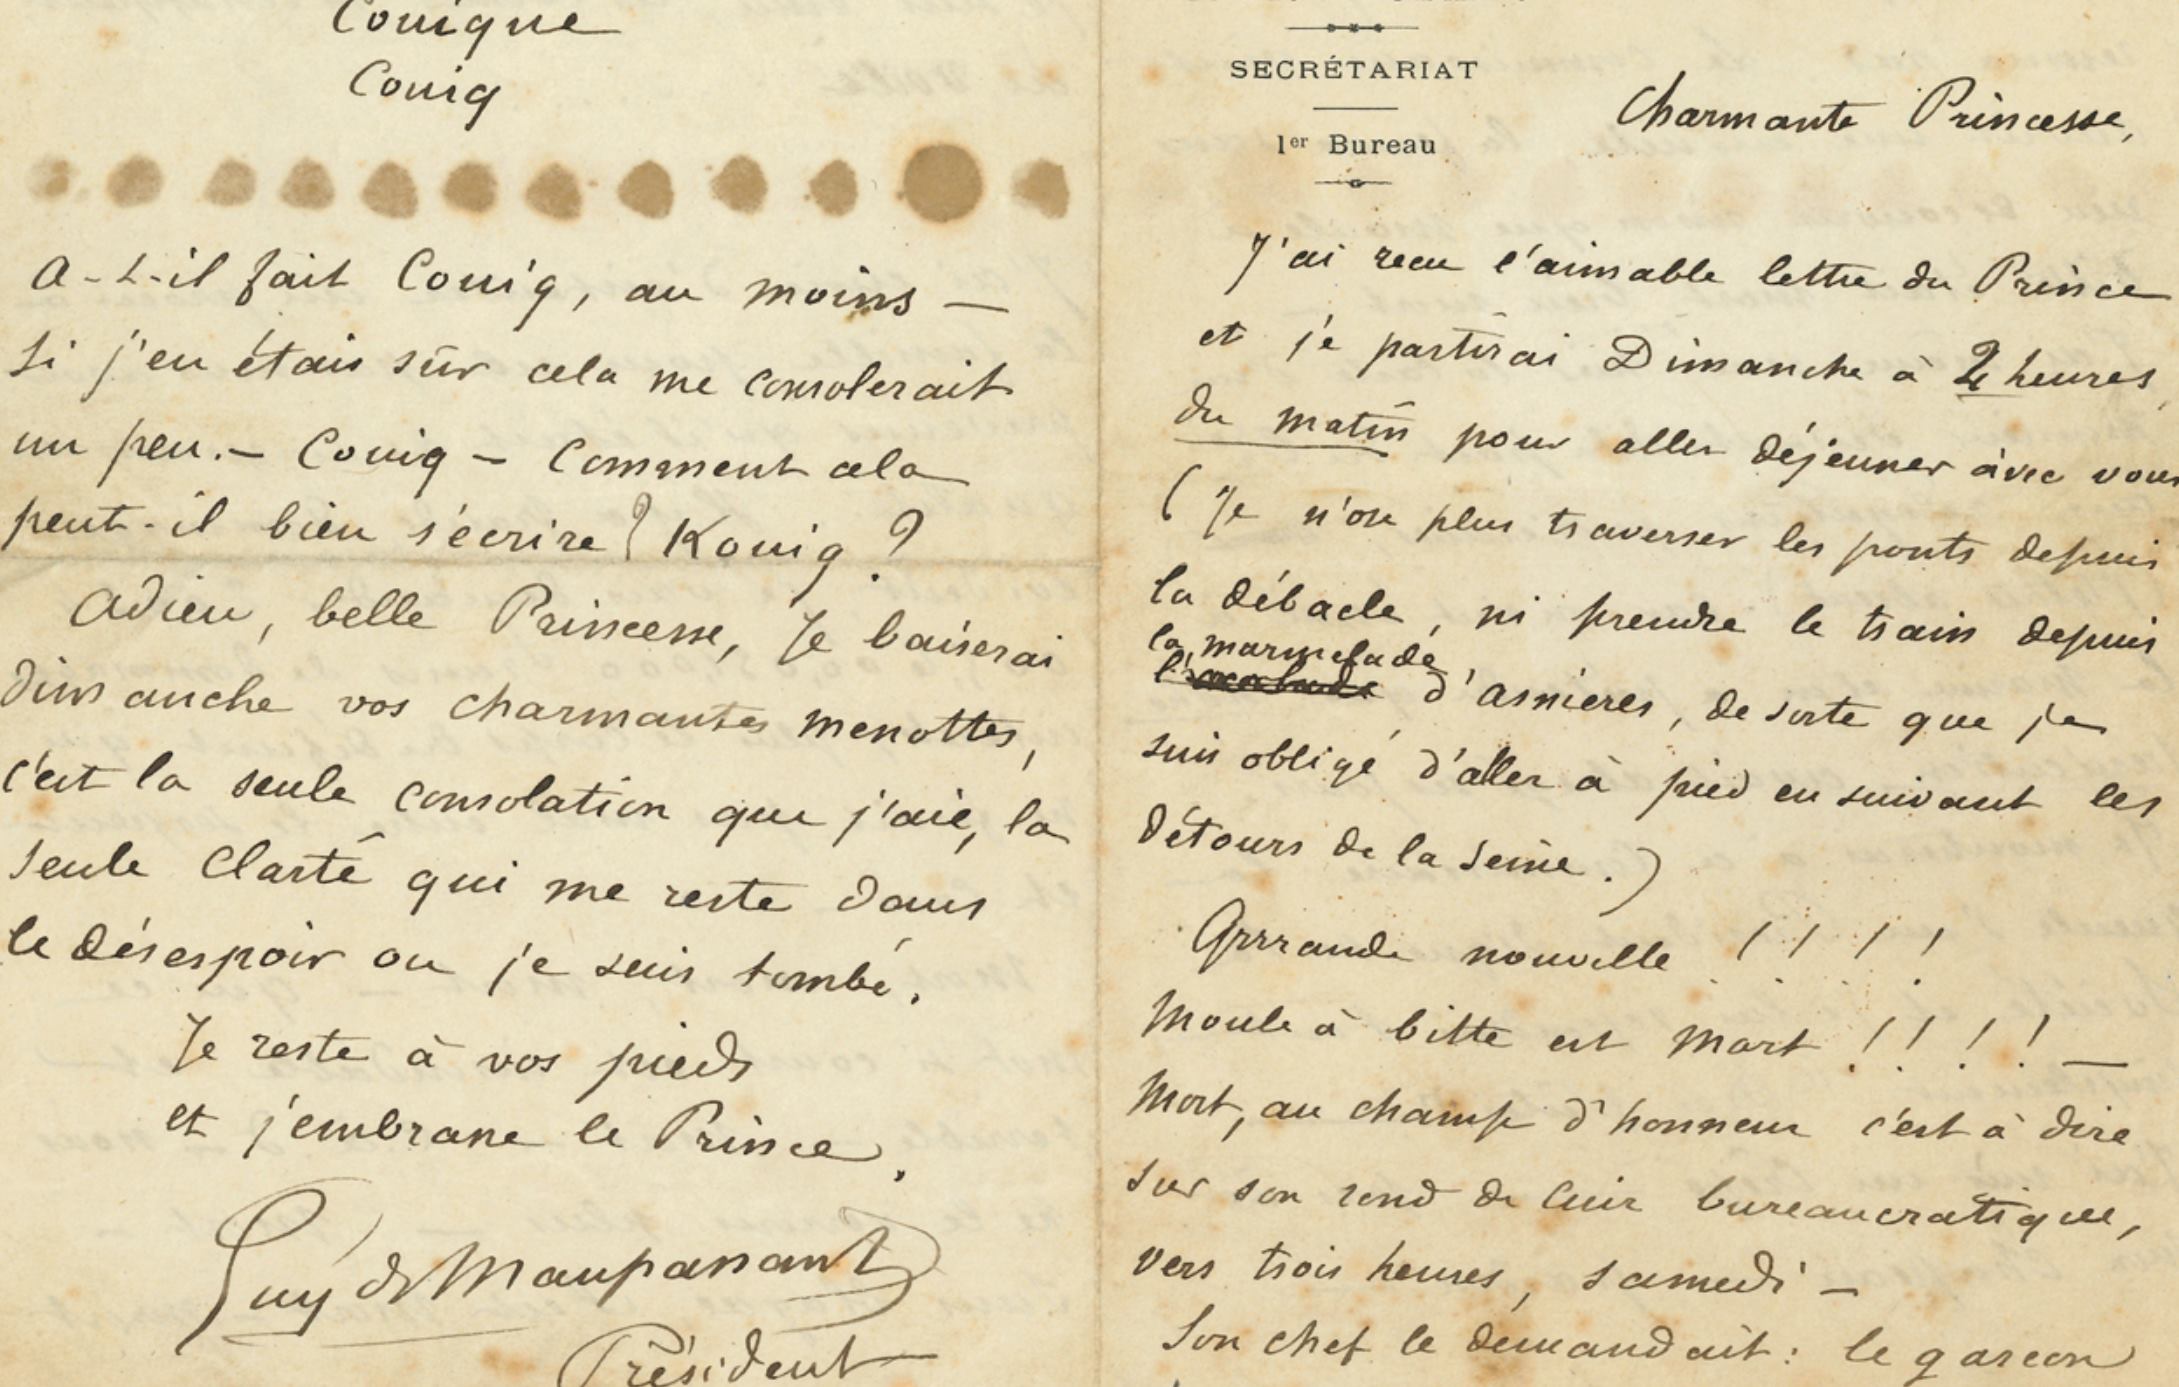 Couique
Couiq
A-t-il fait Couiq, au moins —
Si j'en étais sûr cela me consolerait
un peu. — Couiq — Comment cela
peut-il bien s'écrire? Kouiq?
Adieu, belle Princesse, Je baiserai
dimanche vos charmantes menottes,
c'est la seule consolation que j'aie, la
seule clarté qui me reste dans
le désespoir ou je suis tombé.
Je reste à vos pieds
et j'embrasse le Prince.
Guy de Maupassant
Président
SECRÉTARIAT
1er Bureau
Charmante Princesse,
J'ai recu l'aimable lettre du Prince
et je partirai Dimanche à heures
du matin pour aller déjeuner avec vous
(Je n'ose plus traverser les ponts depuis
la débacle, ni prendre le train depuis
la marmelade
d'Asnieres, de sorte que je
suis obligé d'aller à pied en suivant les
détours de la Seine.)
Grrrande nouvelle !!!!
Moule à bitte est mort !!!! —
Mort, au champ d'honneur c'est à dire
sur son rond de cuir bureaucratique,
vers trois heures, samedi —
Son chef le demandait: le garcon